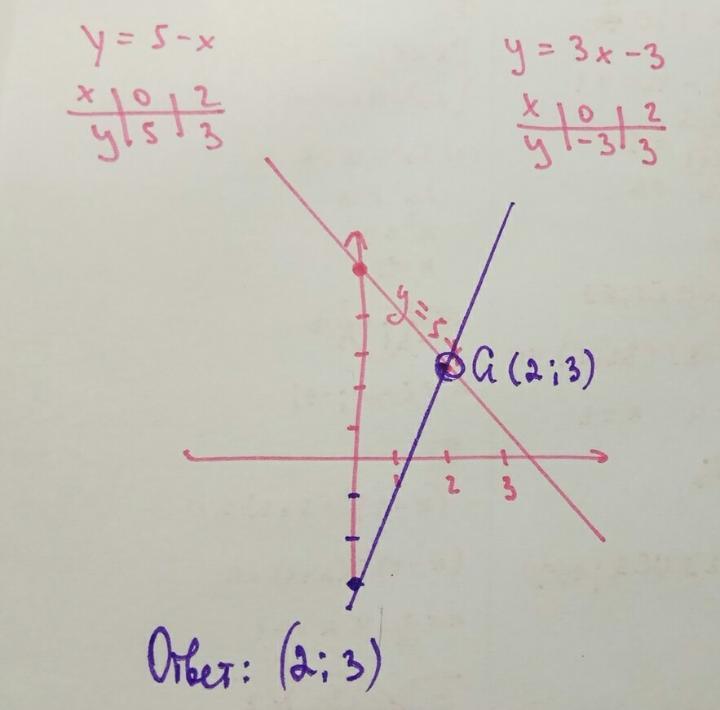 y = 5 - x
x 0 2
y 5 3
y = 3x - 3
x 0 2
y -3 3
y = 5 - x
a (2;3)
1 2 3
Ответ: (2; 3)